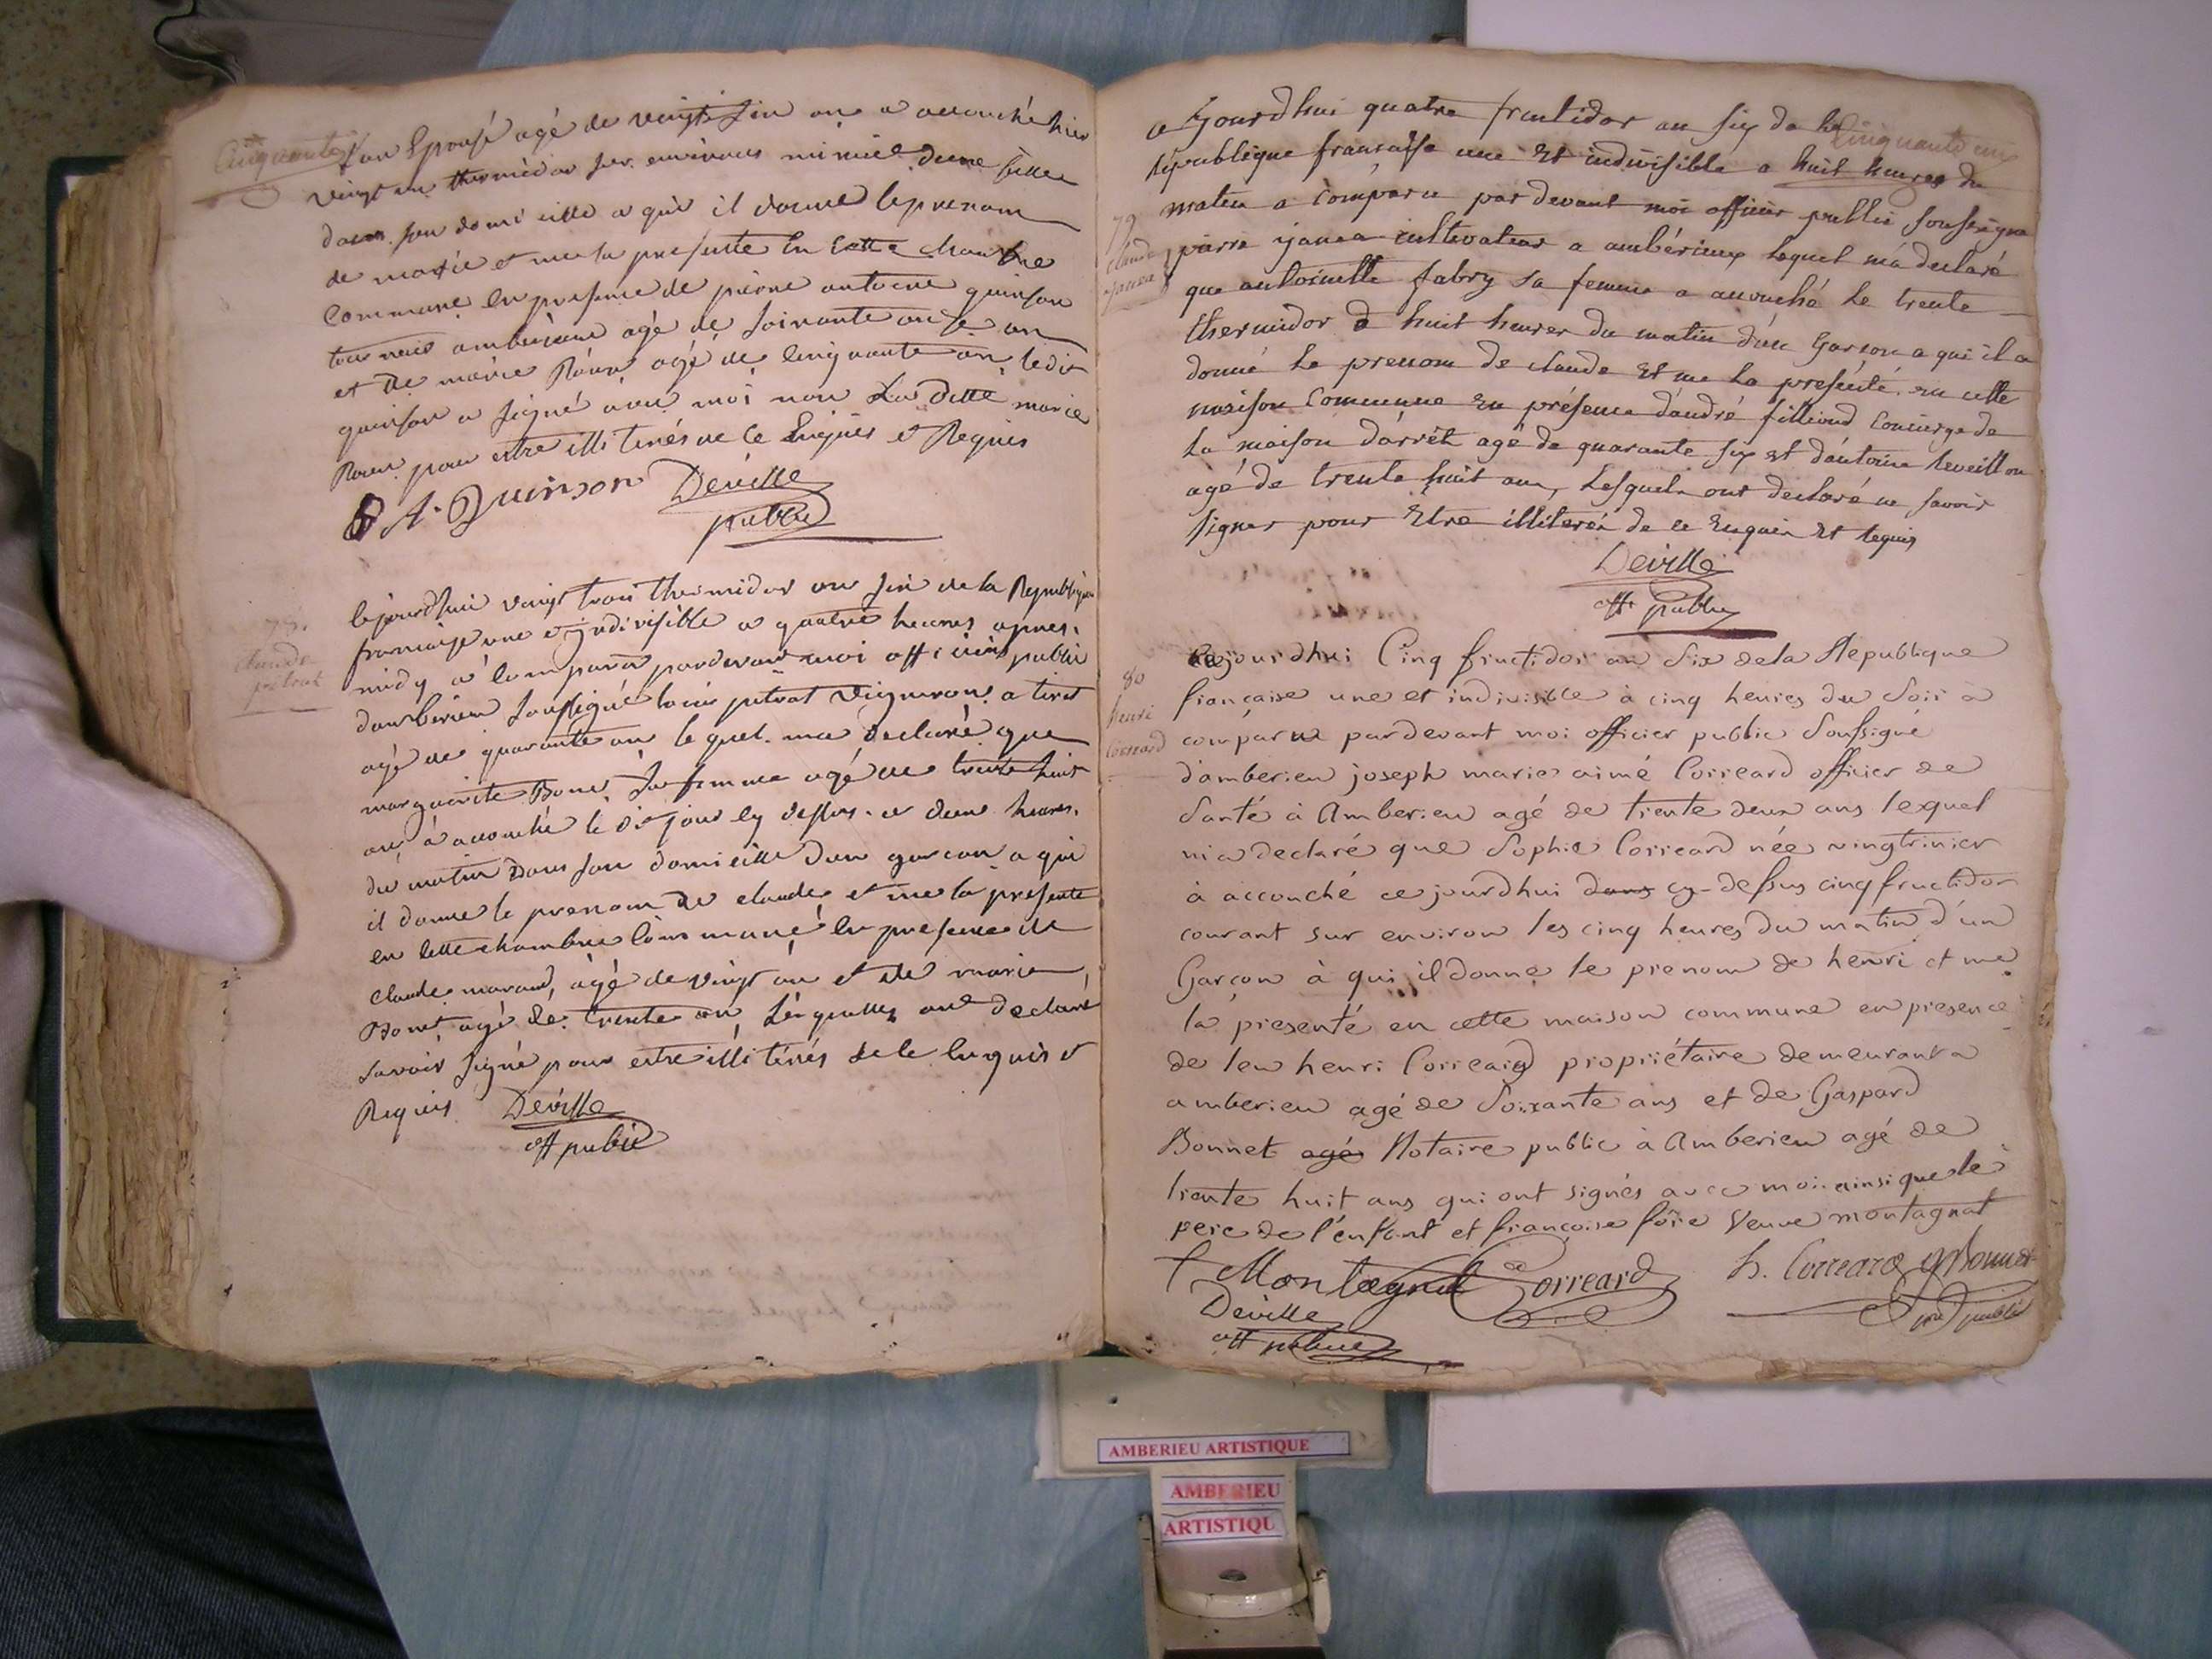 Cinquante
son Epousé agé de vingt six an a accouché hier
vingt un thermidor sur environs minuit dune fille
dans son domi cille a qui il donne le prenom
de marie et me la presente En cette chambre
commune en presence de pierre antoine quinson
agé de soixante onze an
et de marie Roux agé de cinquante an, ledit
quinson a signé avec moi non La ditte marie
Roux pour estre illi terés de ce Enquis et Requis
A. Quinson Deville
public
79.
Claude
pitrat
Cejourdhui vingt trois thermidor an six de la Republique
francaise une et Indivisible a quatre heures apres
midy a comparu pardevant moi officier public
damberieu soussigné louis pitrat vigneron a tiret
agé de quarante an le quel ma declaré que
marguerite Bonet sa femme agé de trente huit
an à accouché le dit jour cy dessus a deux heures
du matin Dans son domicille dun garcon a qui
il donne le prenom de claude et me la presente
en cette chambre commune en presence de
claude marand, agé de vingt an et de marie
Bonet agé de trente an, Lesquelles ont declaré
savoir signé pour estre illi térés de ce Enquis et
Requis Deville
off public
Cinquante un
cejourdhui quatre fructidor an six de la
république française une et indivisible a huit heures du
matin a comparu par devant moi officier public soussigné
79
claude
janea
pierre janea cultivateur a ambérieux lequel m'a declaré
que antoinette fabry sa femme a accouché le trente
thermidor à huit heures du matin d'un Garson a qui il a
donné le prenom de claude et me la presenté en cette
maison Commune En présence d'andré filliond Concierge de
la maison d'arrêt agé de quarante six et d'antoine Reveillon
agé de trente huit ans, Lesquels ont declaré ne savoir
signer pour Etre illiterés de ce Enquis Et requis
Deville
off public
80
henri
Correard
Cejourdhui Cinq fructidor an Six de la République
française une et indivisible à cinq heures du Soir à
comparu pardevant moi officier public Soussigné
d'amberieu joseph marie aimé Correard officier de
Santé à Amberieu agé de trente deux ans lequel
m'a declaré que Sophie Correard née vingtrinier
à accouché ce jourdhui dans cy-dessus cinq fructidor
courant sur environ les cinq heures du matin d'un
Garçon à qui il donne le prenom de henri et me
la presenté en cette maison commune en presence
de leu henri Correard propriétaire demeurant a
amberieu agé de Soixante ans et de Gaspard
Bonnet agé Notaire public à Amberieu agé de
trente huit ans qui ont signés avec moi ainsi que le
pere de l'enfant et françoise foire Veuve montagnat
f Montagnat Correard h. Correard G Bonnet
Deville
off public
AMBERIEU ARTISTIQUE
AMBERIEU
ARTISTIQU